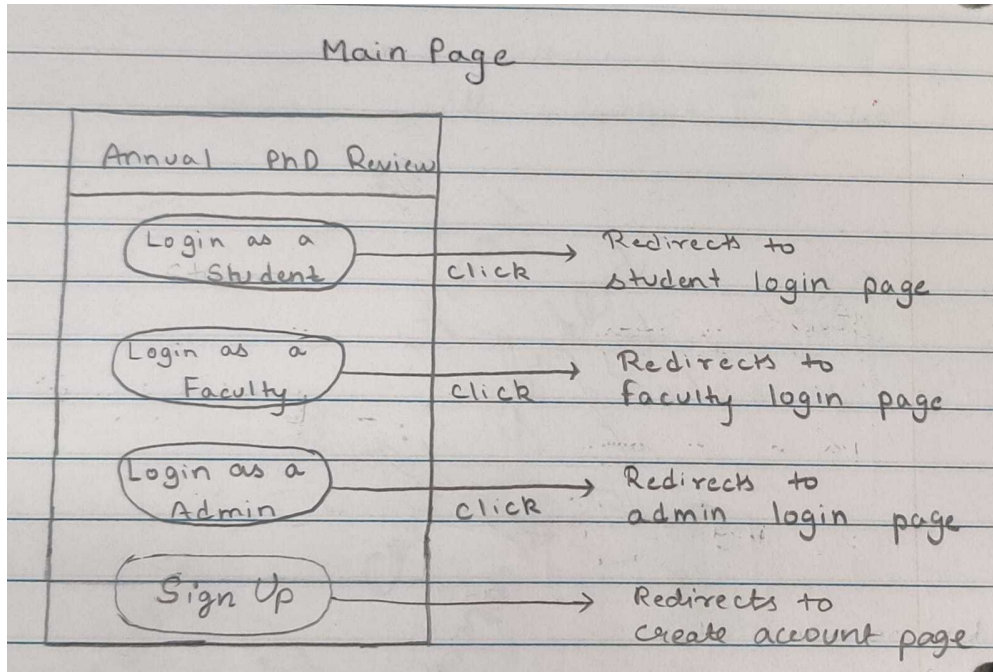 Main Page
Annual PhD Review
Login as a
Student
click
Redirects to
student login page
Login as a
Faculty
click
Redirects to
faculty login page
Login as a
Admin
click
Redirects to
admin login page
Sign Up
Redirects to
create account page